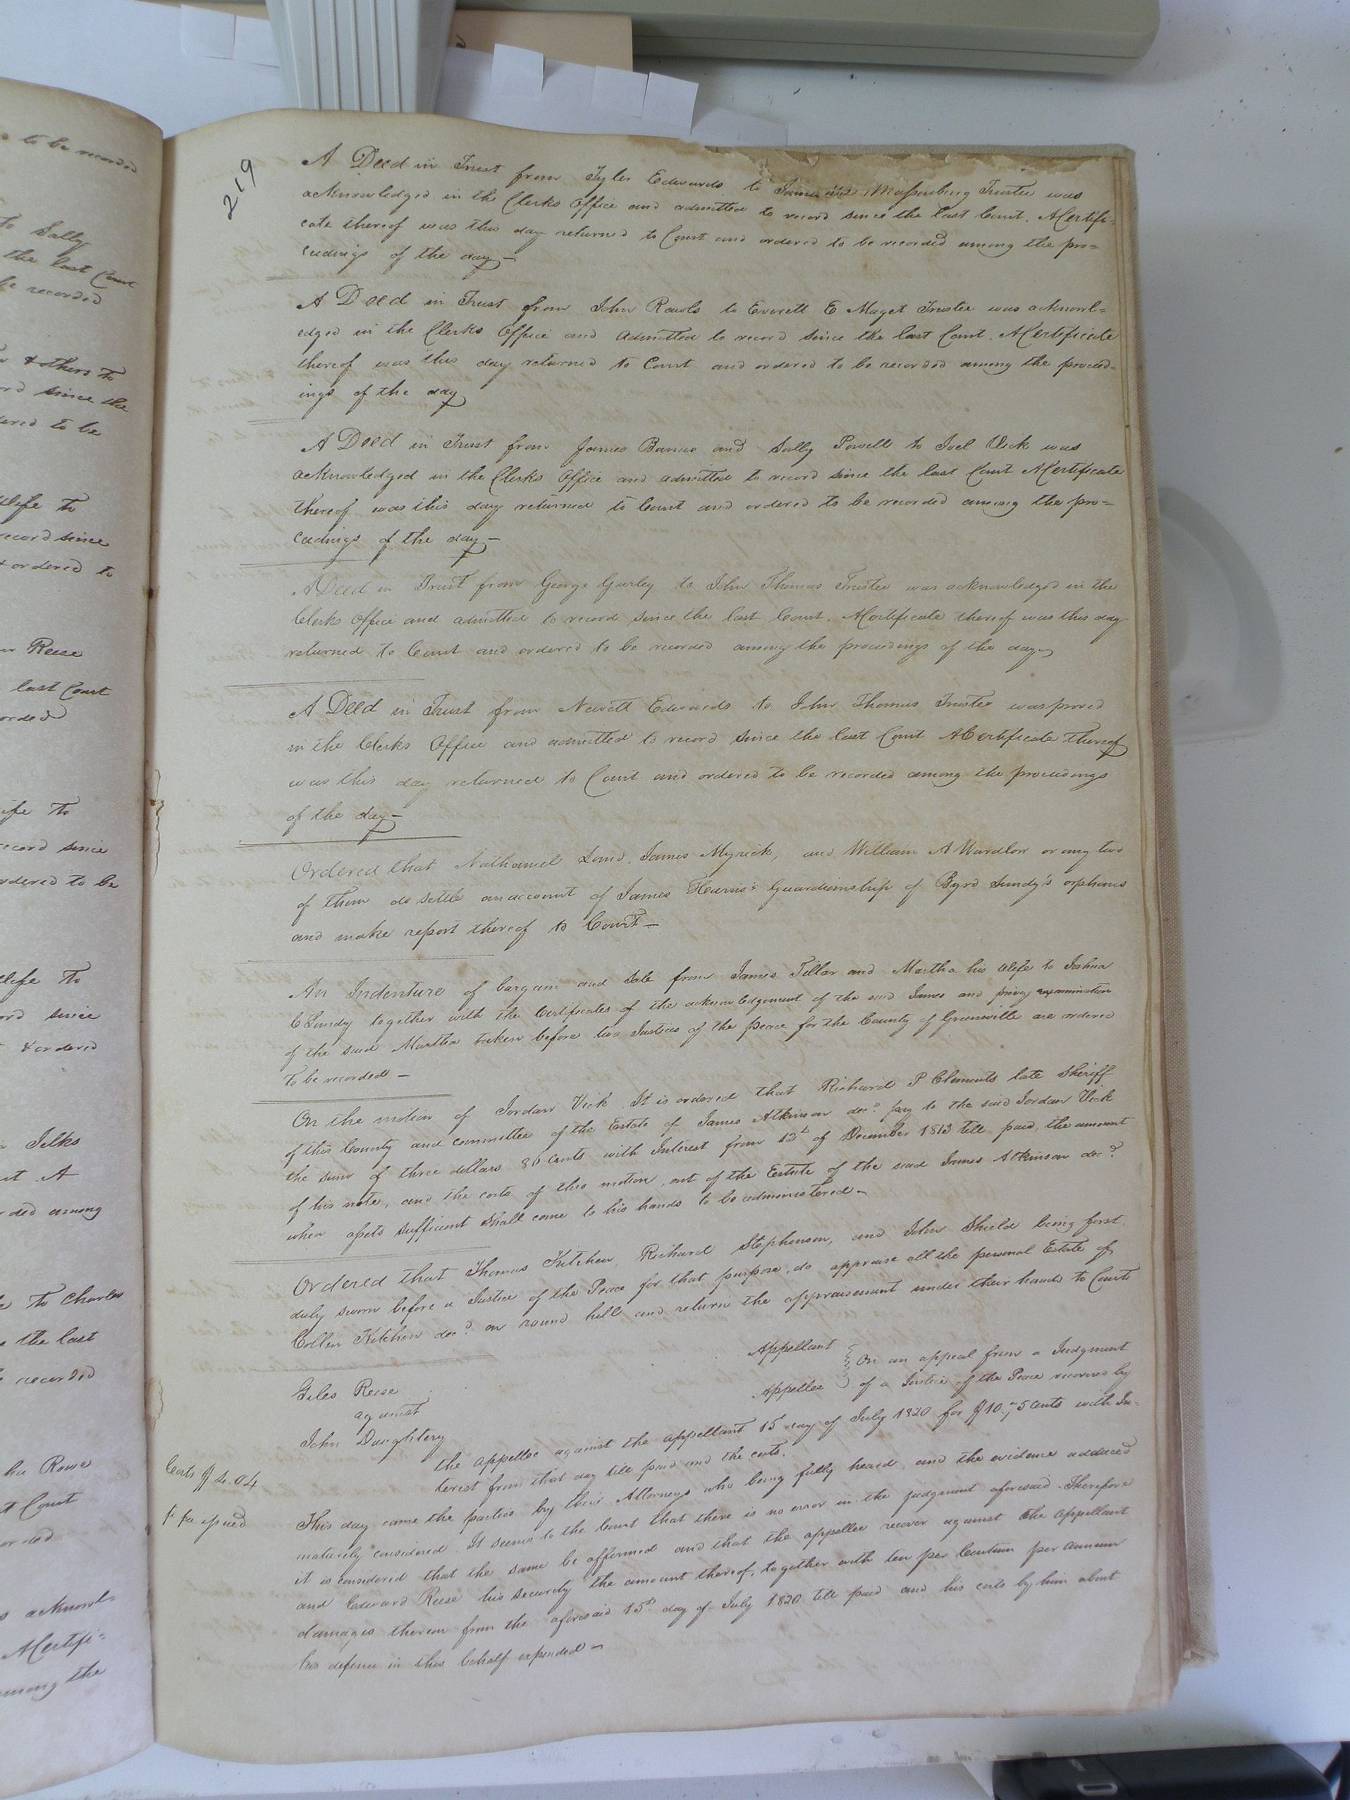 s to be recorded
to Sally
the last Court
be recorded
& others to
ord since the
ered to be
Wife to
record since
& ordered to
Reese
last Court
orded
ife to
record since
ordered to be
Wife to
ord since
& ordered
Silks
A
ded among
to Charles
the last
recorded
Rowe
Court
orded
acknowl-
A Certifi-
among the
219
A Deed in Trust from Tyler Edwards to Massenburg Trustee was
acknowledged in the Clerks Office and admitted to record since the last Court. A Certifi-
cate thereof was this day returned to Court and ordered to be recorded among the pro=
ceedings of the day—
A Deed in Trust from John Rawls to Everett E Maget Trustee was acknowl=
edged in the Clerks Office and admitted to record since the last Court. A Certificate
thereof was this day returned to Court and ordered to be recorded among the proceed-
ings of the day
A Deed in Trust from James Barnes and Sally Powell to Joel Vick was
acknowledged in the Clerks Office and admitted to record since the last Court A Certificate
thereof was this day returned to Court and ordered to be recorded among the pro=
ceedings of the day—
A Deed in Trust from George Gurley to John Thomas Trustee was acknowledged in the
Clerks Office and admitted to record since the last Court. A Certificate thereof was this day
returned to Court and ordered to be recorded among the proceedings of the day
A Deed in Trust from Newitt Edwards to John Thomas Trustee was proved
in the Clerks Office and admitted to record since the last Court A Certificate thereof
was this day returned to Court and ordered to be recorded among the proceedings
of the day—
Ordered that Nathaniel Land, James Myrick, and William A Wardlow or any two
of them do settle an account of James Harris's Guardianship of Byrd Lundy's orphans
and make report thereof to Court—
An Indenture of bargain and sale from James Tillar and Martha his Wife to Joshua
C Lundy together with the Certificates of the acknowledgement of the said James and privy examination
of the said Martha taken before two Justices of the peace for the County of Greensville are ordered
to be recorded—
On the motion of Jordan Vick It is ordered that Richard P Clements late Sheriff
of this County and committee of the Estate of James Atkinson decd. pay to the said Jordan Vick
the sum of three dollars 86 Cents with Interest from 13th of December 1813 till paid, the amount
of his note, and the costs of this motion, out of the Estate of the said James Atkinson decd.
when assets sufficient shall come to his hands to be administered—
Ordered that Thomas Kitchen, Richard Stephenson, and John Shield being first
duly sworn before a Justice of the Peace for that purpose, do appraise all the personal Estate of
Collin Kitchen decd. on round hill and return the appraisement under their hands to Court
Giles Reese Appellant
against
John Daughtery Appellee
On an appeal from a Judgment
of a Justice of the Peace recovered by
the appellee against the appellant 15 day of July 1820 for $10.75 Cents with In-
terest from that day till paid and the costs.
Costs $4.04
Fi fa issued
This day came the parties by their Attorneys who being fully heard, and the evidence adduced
maturely considered. It seems to the Court that there is no error in the judgment aforesaid. Therefore
it is considered that the same be affirmed and that the appellee recover against the appellant
and Edward Reese his security the amount thereof, together with ten per Centum per annum
damages thereon from the aforesaid 15th day of July 1820 till paid and his costs by him about
his defence in this behalf expended—